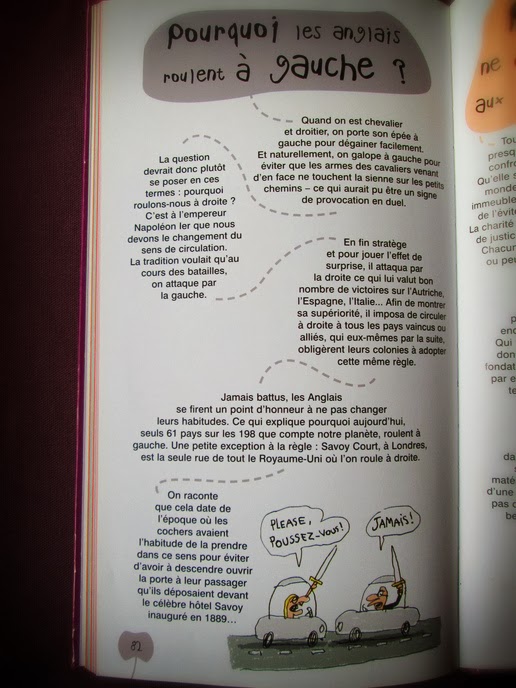 Pourquoi les anglais
roulent à gauche ?
Quand on est chevalier
et droitier, on porte son épée à
gauche pour dégainer facilement.
Et naturellement, on galope à gauche pour
éviter que les armes des cavaliers venant
d'en face ne touchent la sienne sur les petits
chemins – ce qui aurait pu être un signe
de provocation en duel.
La question
devrait donc plutôt
se poser en ces
termes : pourquoi
roulons-nous à droite ?
C'est à l'empereur
Napoléon Ier que nous
devons le changement du
sens de circulation.
La tradition voulait qu'au
cours des batailles,
on attaque par
la gauche.
En fin stratège
et pour jouer l'effet de
surprise, il attaqua par
la droite ce qui lui valut bon
nombre de victoires sur l'Autriche,
l'Espagne, l'Italie... Afin de montrer
sa supériorité, il imposa de circuler
à droite à tous les pays vaincus ou
alliés, qui eux-mêmes par la suite,
obligèrent leurs colonies à adopter
cette même règle.
Jamais battus, les Anglais
se firent un point d'honneur à ne pas changer
leurs habitudes. Ce qui explique pourquoi aujourd'hui,
seuls 61 pays sur les 198 que compte notre planète, roulent à
gauche. Une petite exception à la règle : Savoy Court, à Londres,
est la seule rue de tout le Royaume-Uni où l'on roule à droite.
On raconte
que cela date de
l'époque où les
cochers avaient
l'habitude de la prendre
dans ce sens pour éviter
d'avoir à descendre ouvrir
la porte à leur passager
qu'ils déposaient devant
le célèbre hôtel Savoy
inauguré en 1889...
PLEASE,
POUSSEZ-VOUS!
JAMAIS!
82
ne
aux